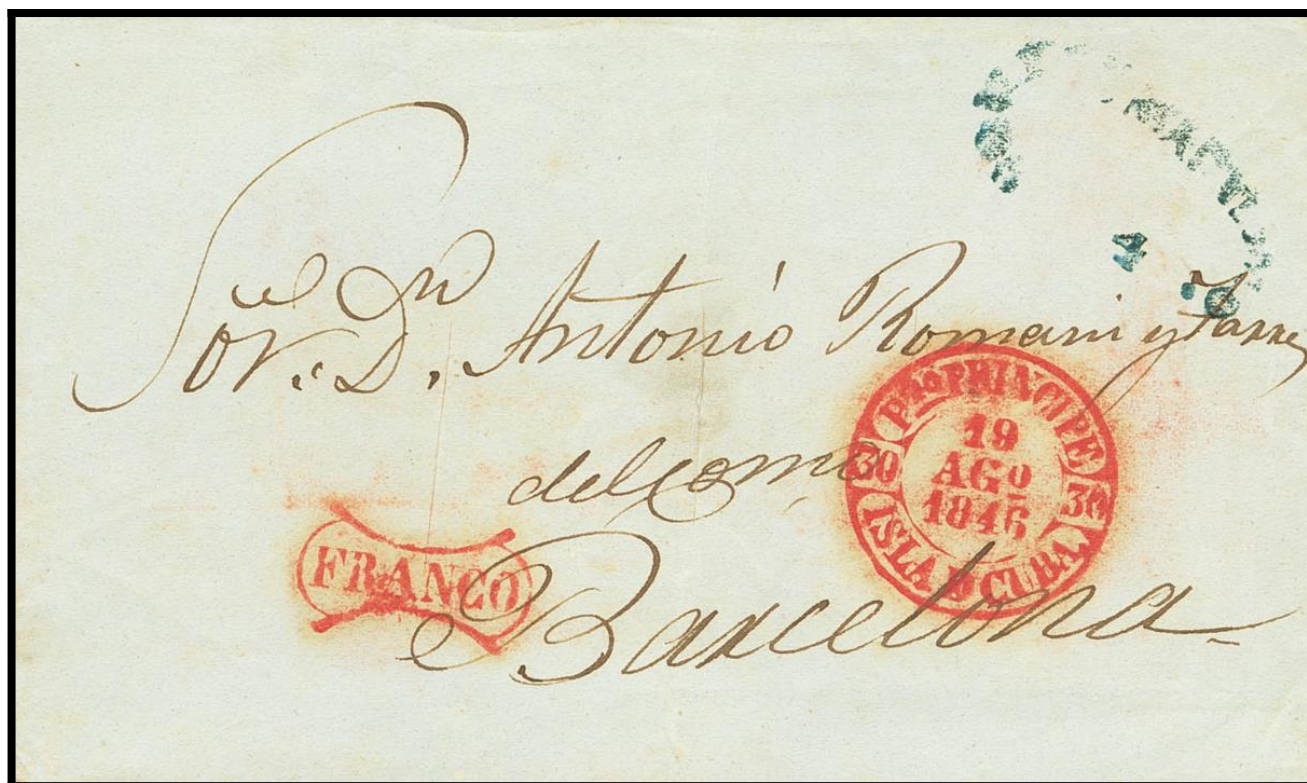 Sor. Dn. Antonio Romani y Tarres
del Como
Barcelona
FRANCO
Pto PRINCIPE
30 30
19
AGo
1846
ISLA D CUBA